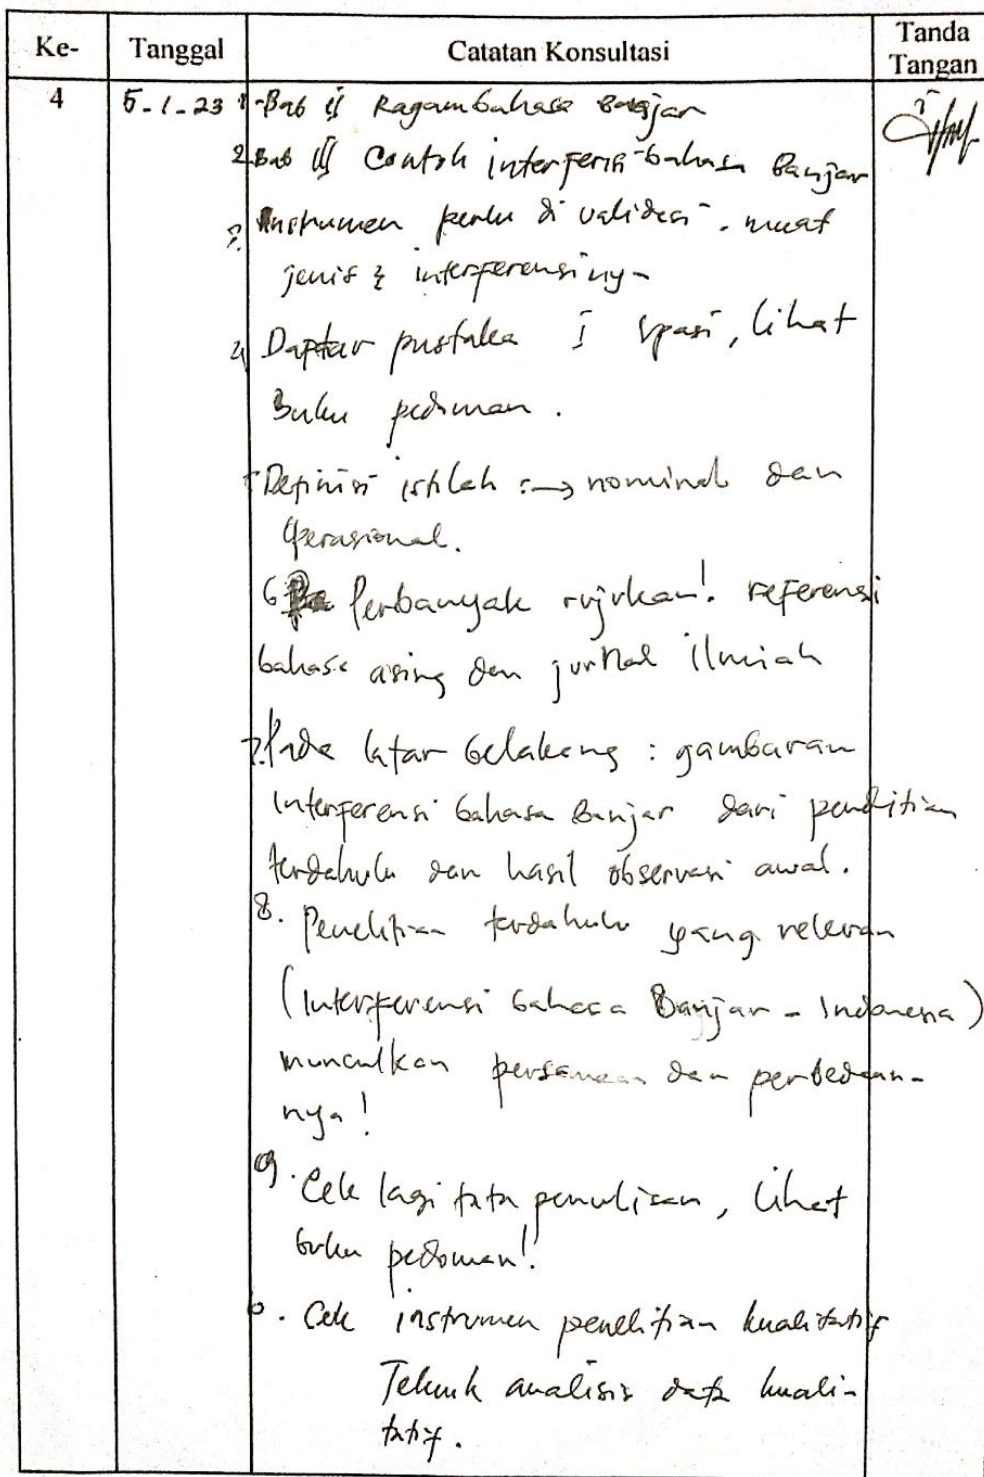 Ke- Tanggal Catatan Konsultasi Tanda Tangan
4 5-1-23 1. Bab II Ragam bahasa Banjar
2. Bab III Contoh interferensi bahasa Banjar
3. Instrumen perlu di validasi - muat
jenis & interferensinya
4 Daftar pustaka 1 spasi, lihat
Buku pedoman.
5 Definisi istilah :→ nominal dan
Operasional.
6 Perbanyak rujukan! referensi
bahasa asing dan jurnal ilmiah
7. Pada latar belakang : gambaran
Interferensi bahasa Banjar dari penelitian
terdahulu dan hasil observasi awal.
8. Penelitian terdahulu yang relevan
(Interferensi bahasa Banjar - Indonesia)
munculkan persamaan dan perbedaan-
nya!
9. Cek lagi tata penulisan, lihat
buku pedoman!
10. Cek instrumen penelitian kualitatif
Teknik analisis data kuali-
tatif.